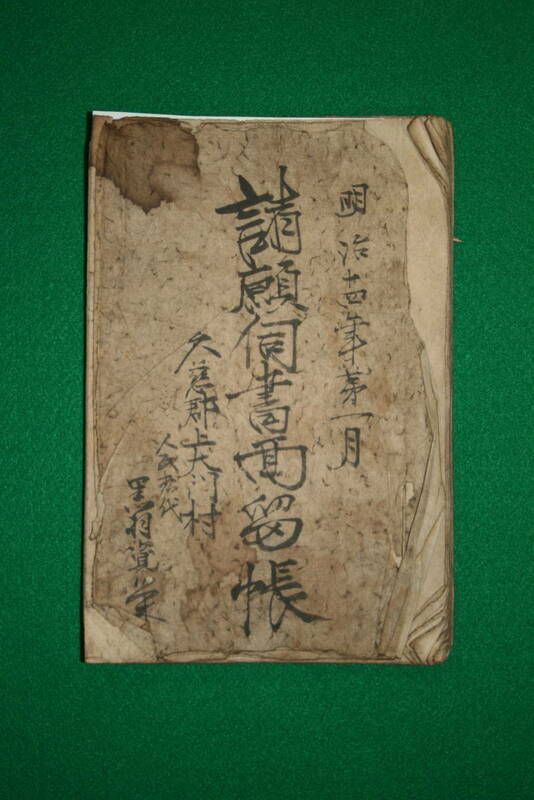 明治十四年第一月
請願伺書面留帳
久慈郡上大門村
人民惣代
黒羽資栄